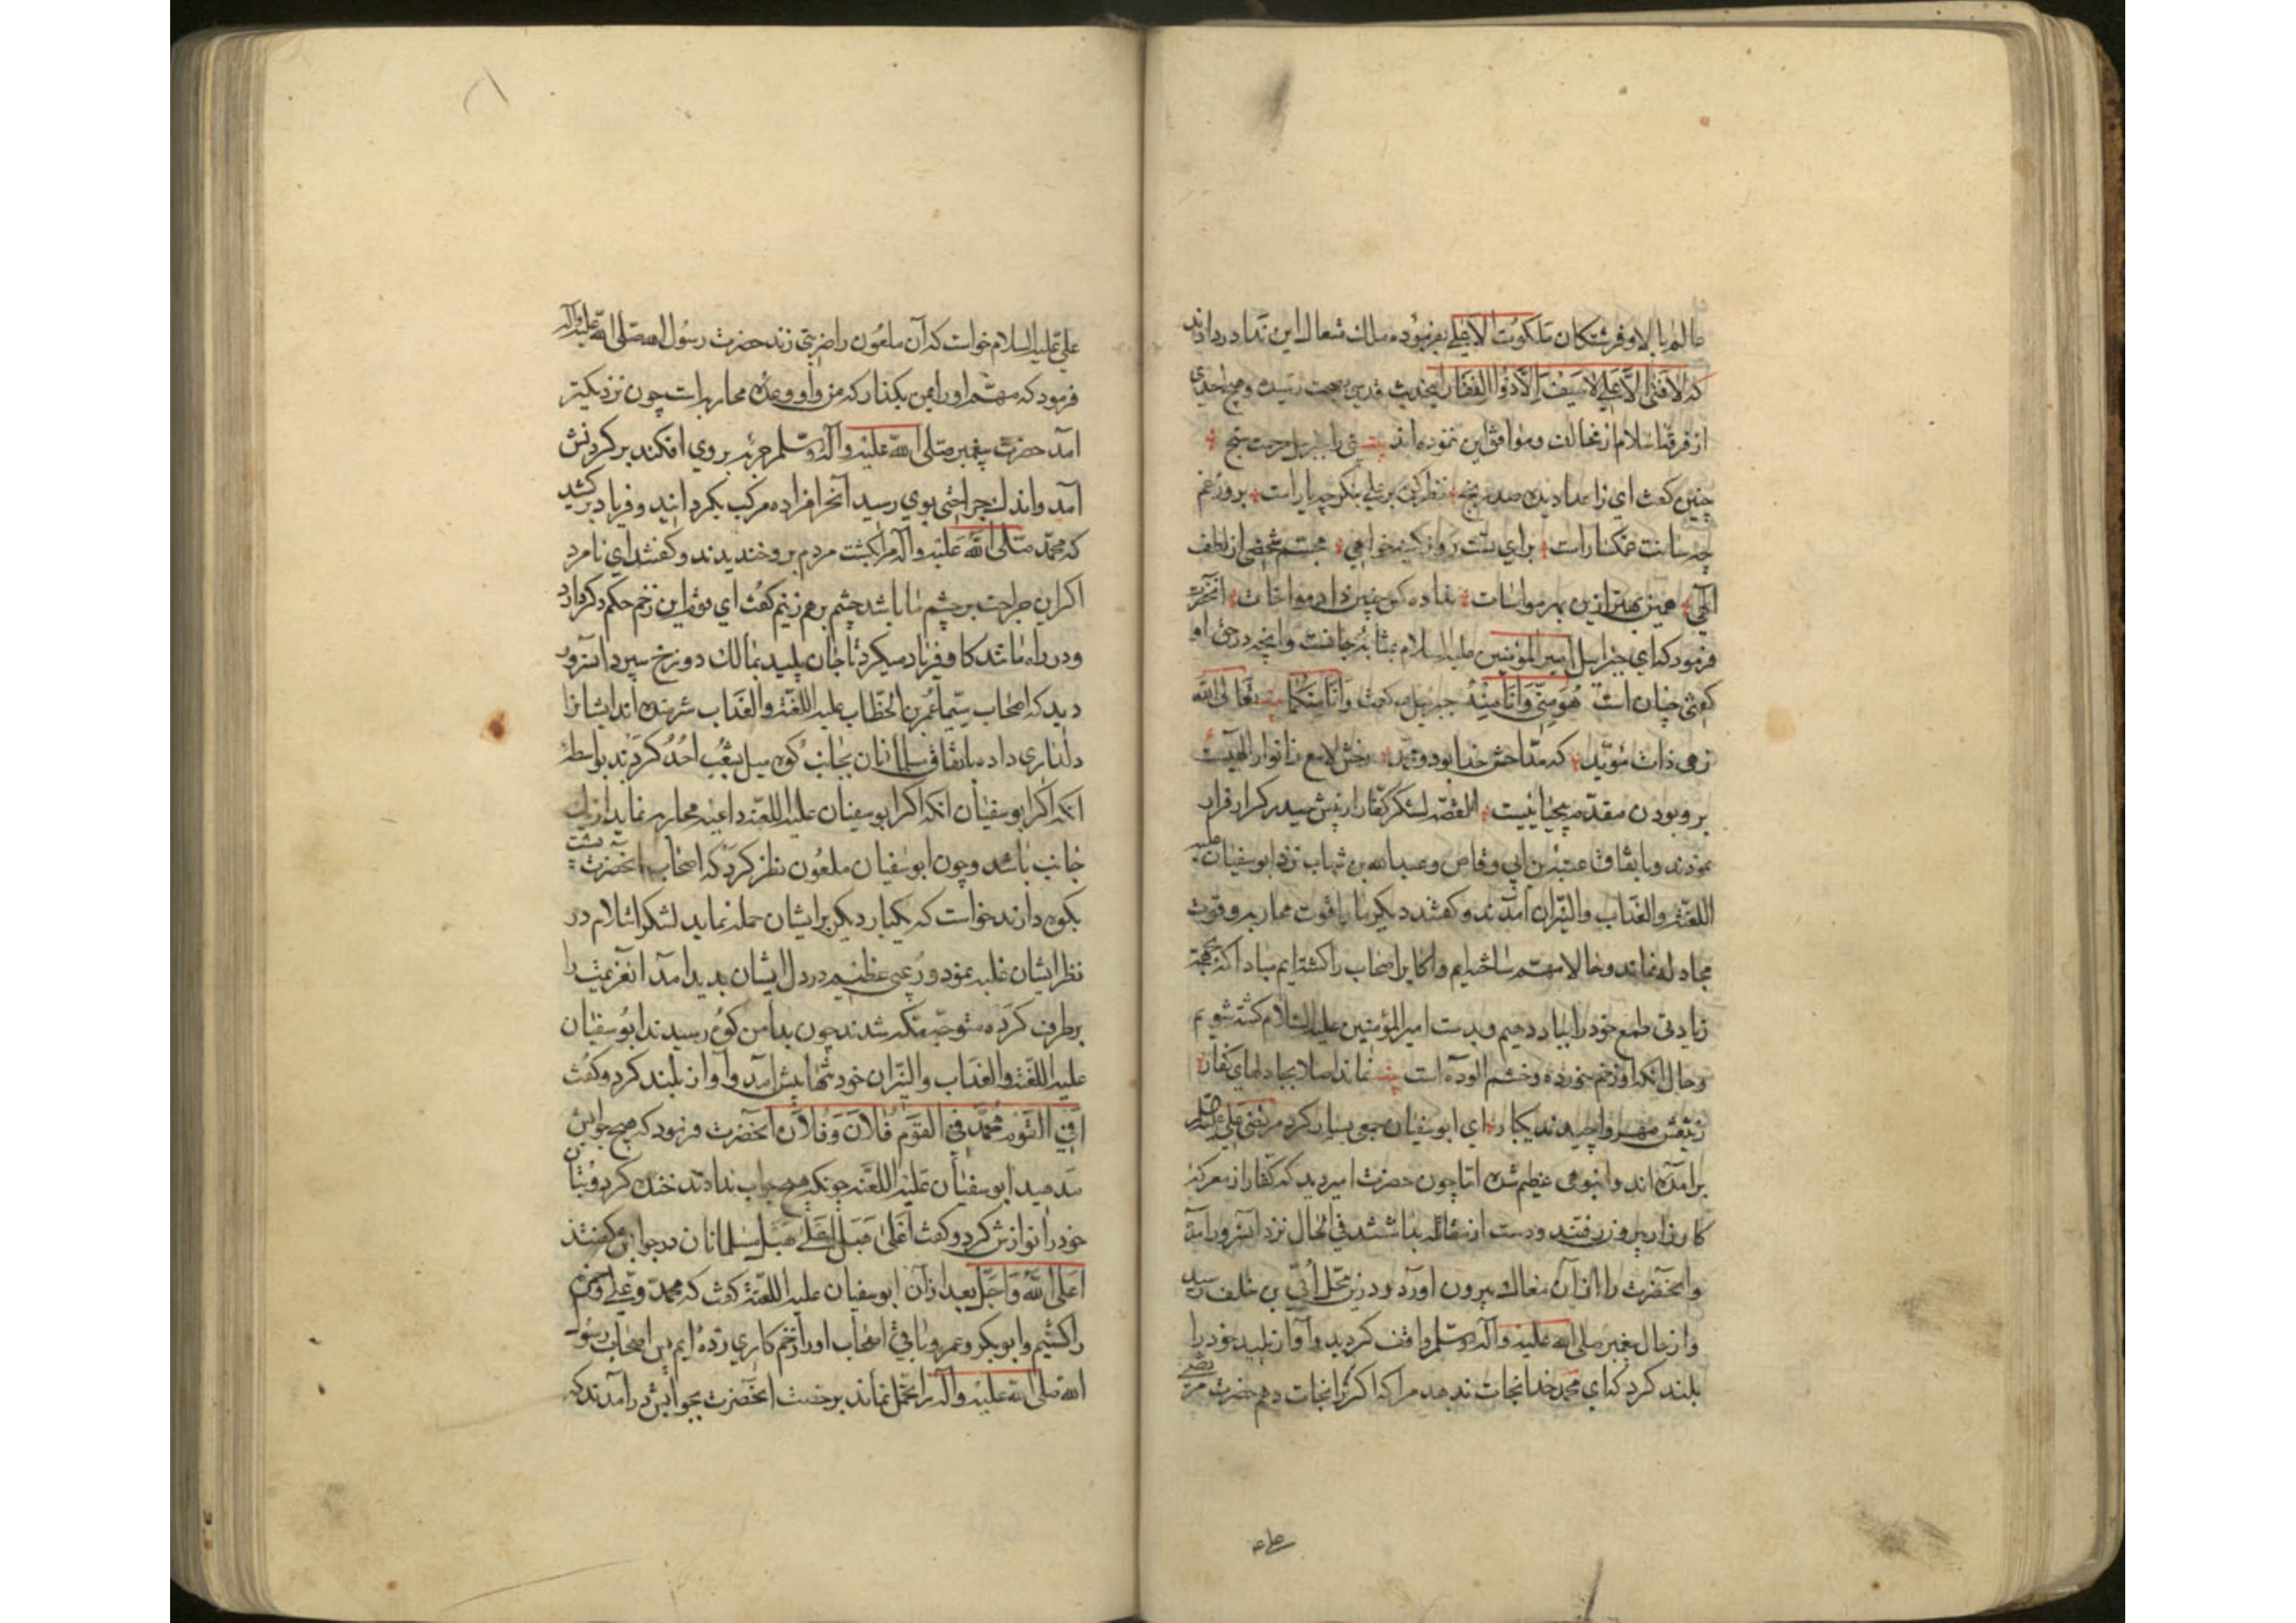 عالم بالا و فرشتکان ملکوت الاعلی بفرموده ملک متعال این ندا در دادند
که لا فتی الا علی لا سیف الا ذوالفقار این حدیث قدسی بصحت رسیده و هیچ احدی
از فرق اسلام از مخالف و موافق این نموده اند بیت نبی را جبرئیل مرحمت سنج
چنین کفت ای ز اعدا دیده صد رنج نظر کن بر علی بنکر چه یار است بروز غم
چه سانت غمکسار است برای تست
آلهی همین بهتر ازین بهر مواسات نداده کس چنین داد مواخات آنحضرت
فرمود که ای جبرائیل امیر المؤمنین علیه السلام بمثابه جانست و آنچه در حق او
کفتی چنان است هُوَ مِنّی وَاَنَا مِنهُ جبرئیل کفت وَاَنَا مِنکُما بیت تَعالَی الله
زهی ذات مؤیّد که مدّاحش خدا بود و محمّد رخش لامع ز انوار الهیت
برو بودن مقدّم بیحیائیست القصّه لشکر کفّار از پیش حیدر کرار فرار
نمودند و باتفاق عتبة بن ابی وقاص و عبدالله بن شهاب نزد ابوسفیان علیه
اللعنة والعذاب والنّیران آمدند و کفتند دیکر ما را قوت محاربه و قوت
مجادله نماند و حالا مهم ساخته ایم و اکابر اصحاب را کشته ایم مبادا که بجهة
زیادتی طمع خود را بباد دهیم و بدست امیر المؤمنین علیه السلام کشته شویم
و حال آنکه او زخم خورده و خشم آلوده است بیت نماند اصلا بجا دلهای کفار
ز تیغش مهره وا چیدند یکبار ای ابوسفیان جمعی بسیار کرد مرتضی علی علیه السلام
برآمده اند و انبوهی عظیم شده امّا چون حضرت امیر دید که کفّار از معرکه
کارزار بیرون رفتند و دست از مقاتله بداشتند فی الحال نزد آنسرور آمد
و آنحضرت را از آن مغاک بیرون آورد و درین محل اُبیّ بن خلف رسید
و از حال پیغمبر صلی الله علیه وآله وسلم واقف کردید و آواز پلید خود را
بلند کرد که ای محمد خدا نجات ندهد مرا که اکر ترا نجات دهم حضرت مرتضی
علی علیه السلام خواست که آن ملعون را ضربتی زند حضرت رسول الله صلی الله علیه وآله
فرمود که مهم او را بمن بکذار که من و او وعده محاربه است چون نزدیکتر
آمد حضرت پیغمبر صلی الله علیه وآله وسلم حربه بر وی افکند بر کردنش
آمد و اندک جراحتی بوی رسید آنخر افزاده مرکب بکردانید و فریاد برکشید
که محمّد صلی الله علیه وآله مرا بکشت مردم برو خندیدند و کفتند ای نامرد
اکر این جراحت بر چشم ما باشد چشم بر هم نزنیم کفت ای قوم این زخم حکم دکر دارد
و در راه مانند کاو فریاد میکرد تا جان پلید بمالک دوزخ سپرد آنسرور
دید که اصحاب سیّما عمر بن الخطّاب علیه اللعنة والعذاب شرمنده اند ایشانرا
دلداری داده باتفاق مسلمانان بجانب کوه میل بشِعب اُحُد کردند بواسطه
آنکه اکر ابوسفیان آنکه اکر ابوسفیان علیه اللعنه داعیه محاربه نماید از یک
جانب باشد و چون ابوسفیان ملعون نظر کرد که اصحاب آنحضرت پشت
بکوه دارند خواست که یکبار دیکر بر ایشان حمله نماید لشکر اسلام در
نظر ایشان غلبه نمود و رُعبی عظیم در دل ایشان پدید آمد آنعزیمت را
برطرف کرده متوجّه مکّه شدند چون بدامن کوه رسیدند ابوسفیان
علیه اللعنة والعذاب والنّیران خود تنها پیش آمد و آواز بلند کرد و کفت
اَفِی القَوم محمَّد فِی القَوم فُلانَ وَفُلان آنحضرت فرمود که هیچ جوابش
مدهید ابوسفیان علیه اللعنه چونکه هیچ جواب ندادند خنده کرد و بُتان
خود را نوازش کرد و کفت اَعلی هُبَل اَعلی هُبَل مسلمانان در جوابش کفتند
اَعلَی اللهُ وَاَجَلّ بعد از آن ابوسفیان علیه اللعنة کفت که محمد و علی و حمزه
را کشتیم و ابوبکر و عمر و باقی اصحاب او را زخم کاری زده ایم پس اصحاب رسول
الله صلی الله علیه وآله را تحمّل نماند برخصت آنحضرت بجوابش در آمدند که